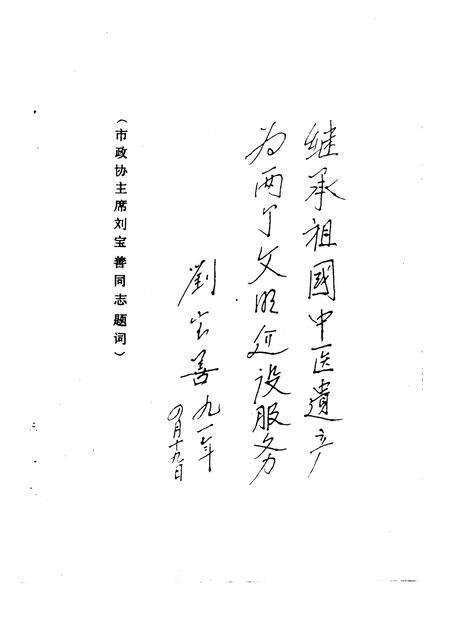 继承祖國中医遺产
为两个文明建设服务
劉宝善 九一年
四月十九日
（市政协主席刘宝善同志题词）